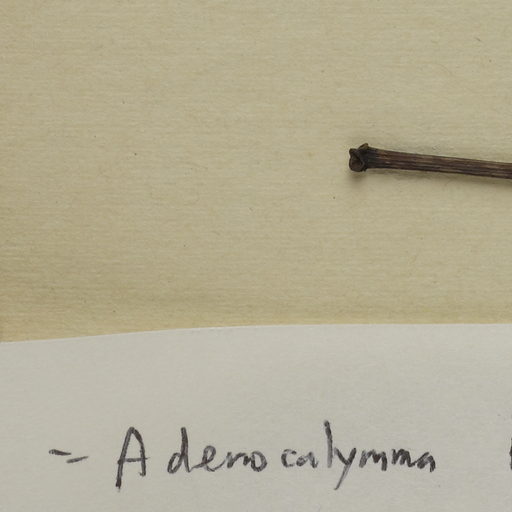 = Adenocalymma